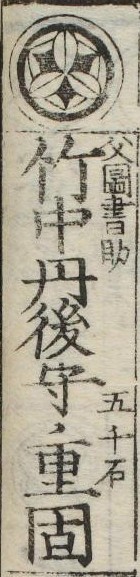 父圖書助
竹中丹後守、重固
五千石